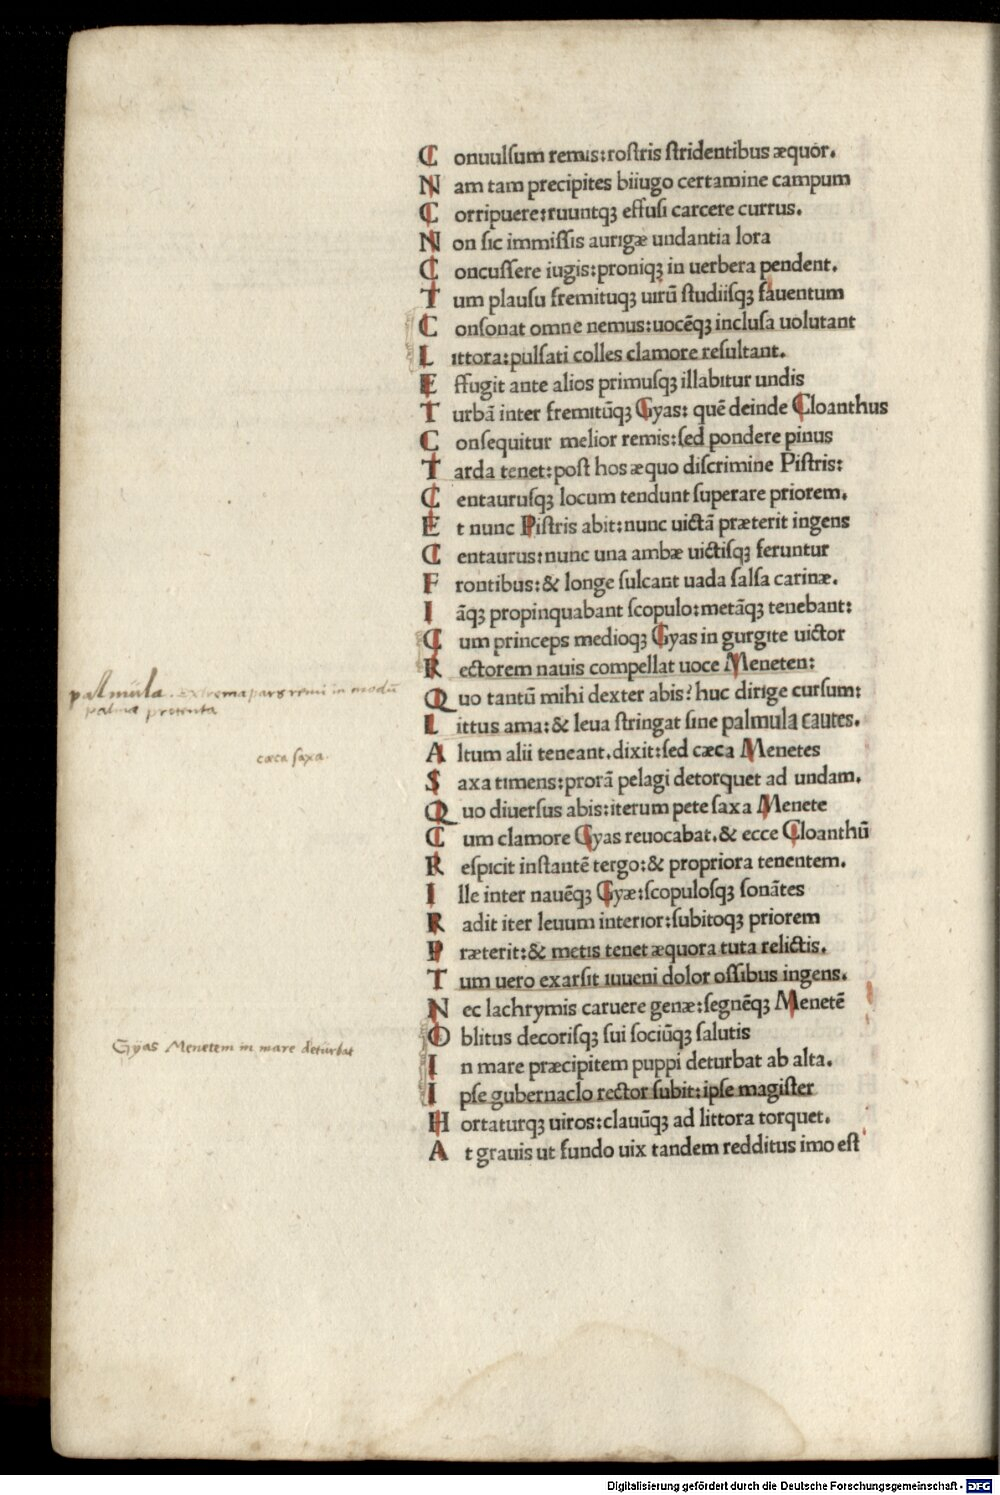 C onuulsum remis:rostris stridentibus æquor.
N am tam precipites biiugo certamine campum
C orripuere:ruuntqꝫ effusi carcere currus.
N on sic immissis aurigæ undantia lora
C oncussere iugis:proniqꝫ in uerbera pendent.
T um plausu fremituqꝫ uirū studiisqꝫ fauentum
C onsonat omne nemus:uocēqꝫ inclusa uolutant
L ittora:pulsati colles clamore resultant.
E ffugit ante alios primusqꝫ illabitur undis
T urbā inter fremitūqꝫ Gyas: quē deinde Cloanthus
C onsequitur melior remis:sed pondere pinus
T arda tenet:post hos æquo discrimine Pistris:
C entaurusqꝫ locum tendunt superare priorem.
E t nunc Pistris abit:nunc uictā præterit ingens
C entaurus:nunc una ambæ uictisqꝫ feruntur
F rontibus:& longe sulcant uada salsa carinæ.
I āqꝫ propinquabant scopulo:metāqꝫ tenebant:
C um princeps medioqꝫ Gyas in gurgite uictor
R ectorem nauis compellat uoce Meneten:
palmula. Extrema pars remi in modū
palmæ protenta
Q uo tantū mihi dexter abis? huc dirige cursum:
L ittus ama:& leua stringat sine palmula cautes.
A ltum alii teneant.dixit:sed cæca Menetes
cæca saxa.
S axa timens:prorā pelagi detorquet ad undam.
Q uo diuersus abis:iterum pete saxa Menete
C um clamore Gyas reuocabat.& ecce Cloanthū
R espicit instantē tergo:& propriora tenentem.
I lle inter nauēqꝫ Gyæ:scopulosqꝫ sonātes
R adit iter leuum interior:subitoqꝫ priorem
P ræterit:& metis tenet æquora tuta relictis.
T um uero exarsit iuueni dolor ossibus ingens.
N ec lachrymis caruere genæ:segnēqꝫ Menetē
O blitus decorisqꝫ sui sociūqꝫ salutis
Gyas Menetem in mare deturbat
I n mare præcipitem puppi deturbat ab alta.
I pse gubernaclo rector subit:ipse magister
H ortaturqꝫ uiros:clauūqꝫ ad littora torquet.
A t grauis ut fundo uix tandem redditus imo est
Digitalisierung gefördert durch die Deutsche Forschungsgemeinschaft - DFG